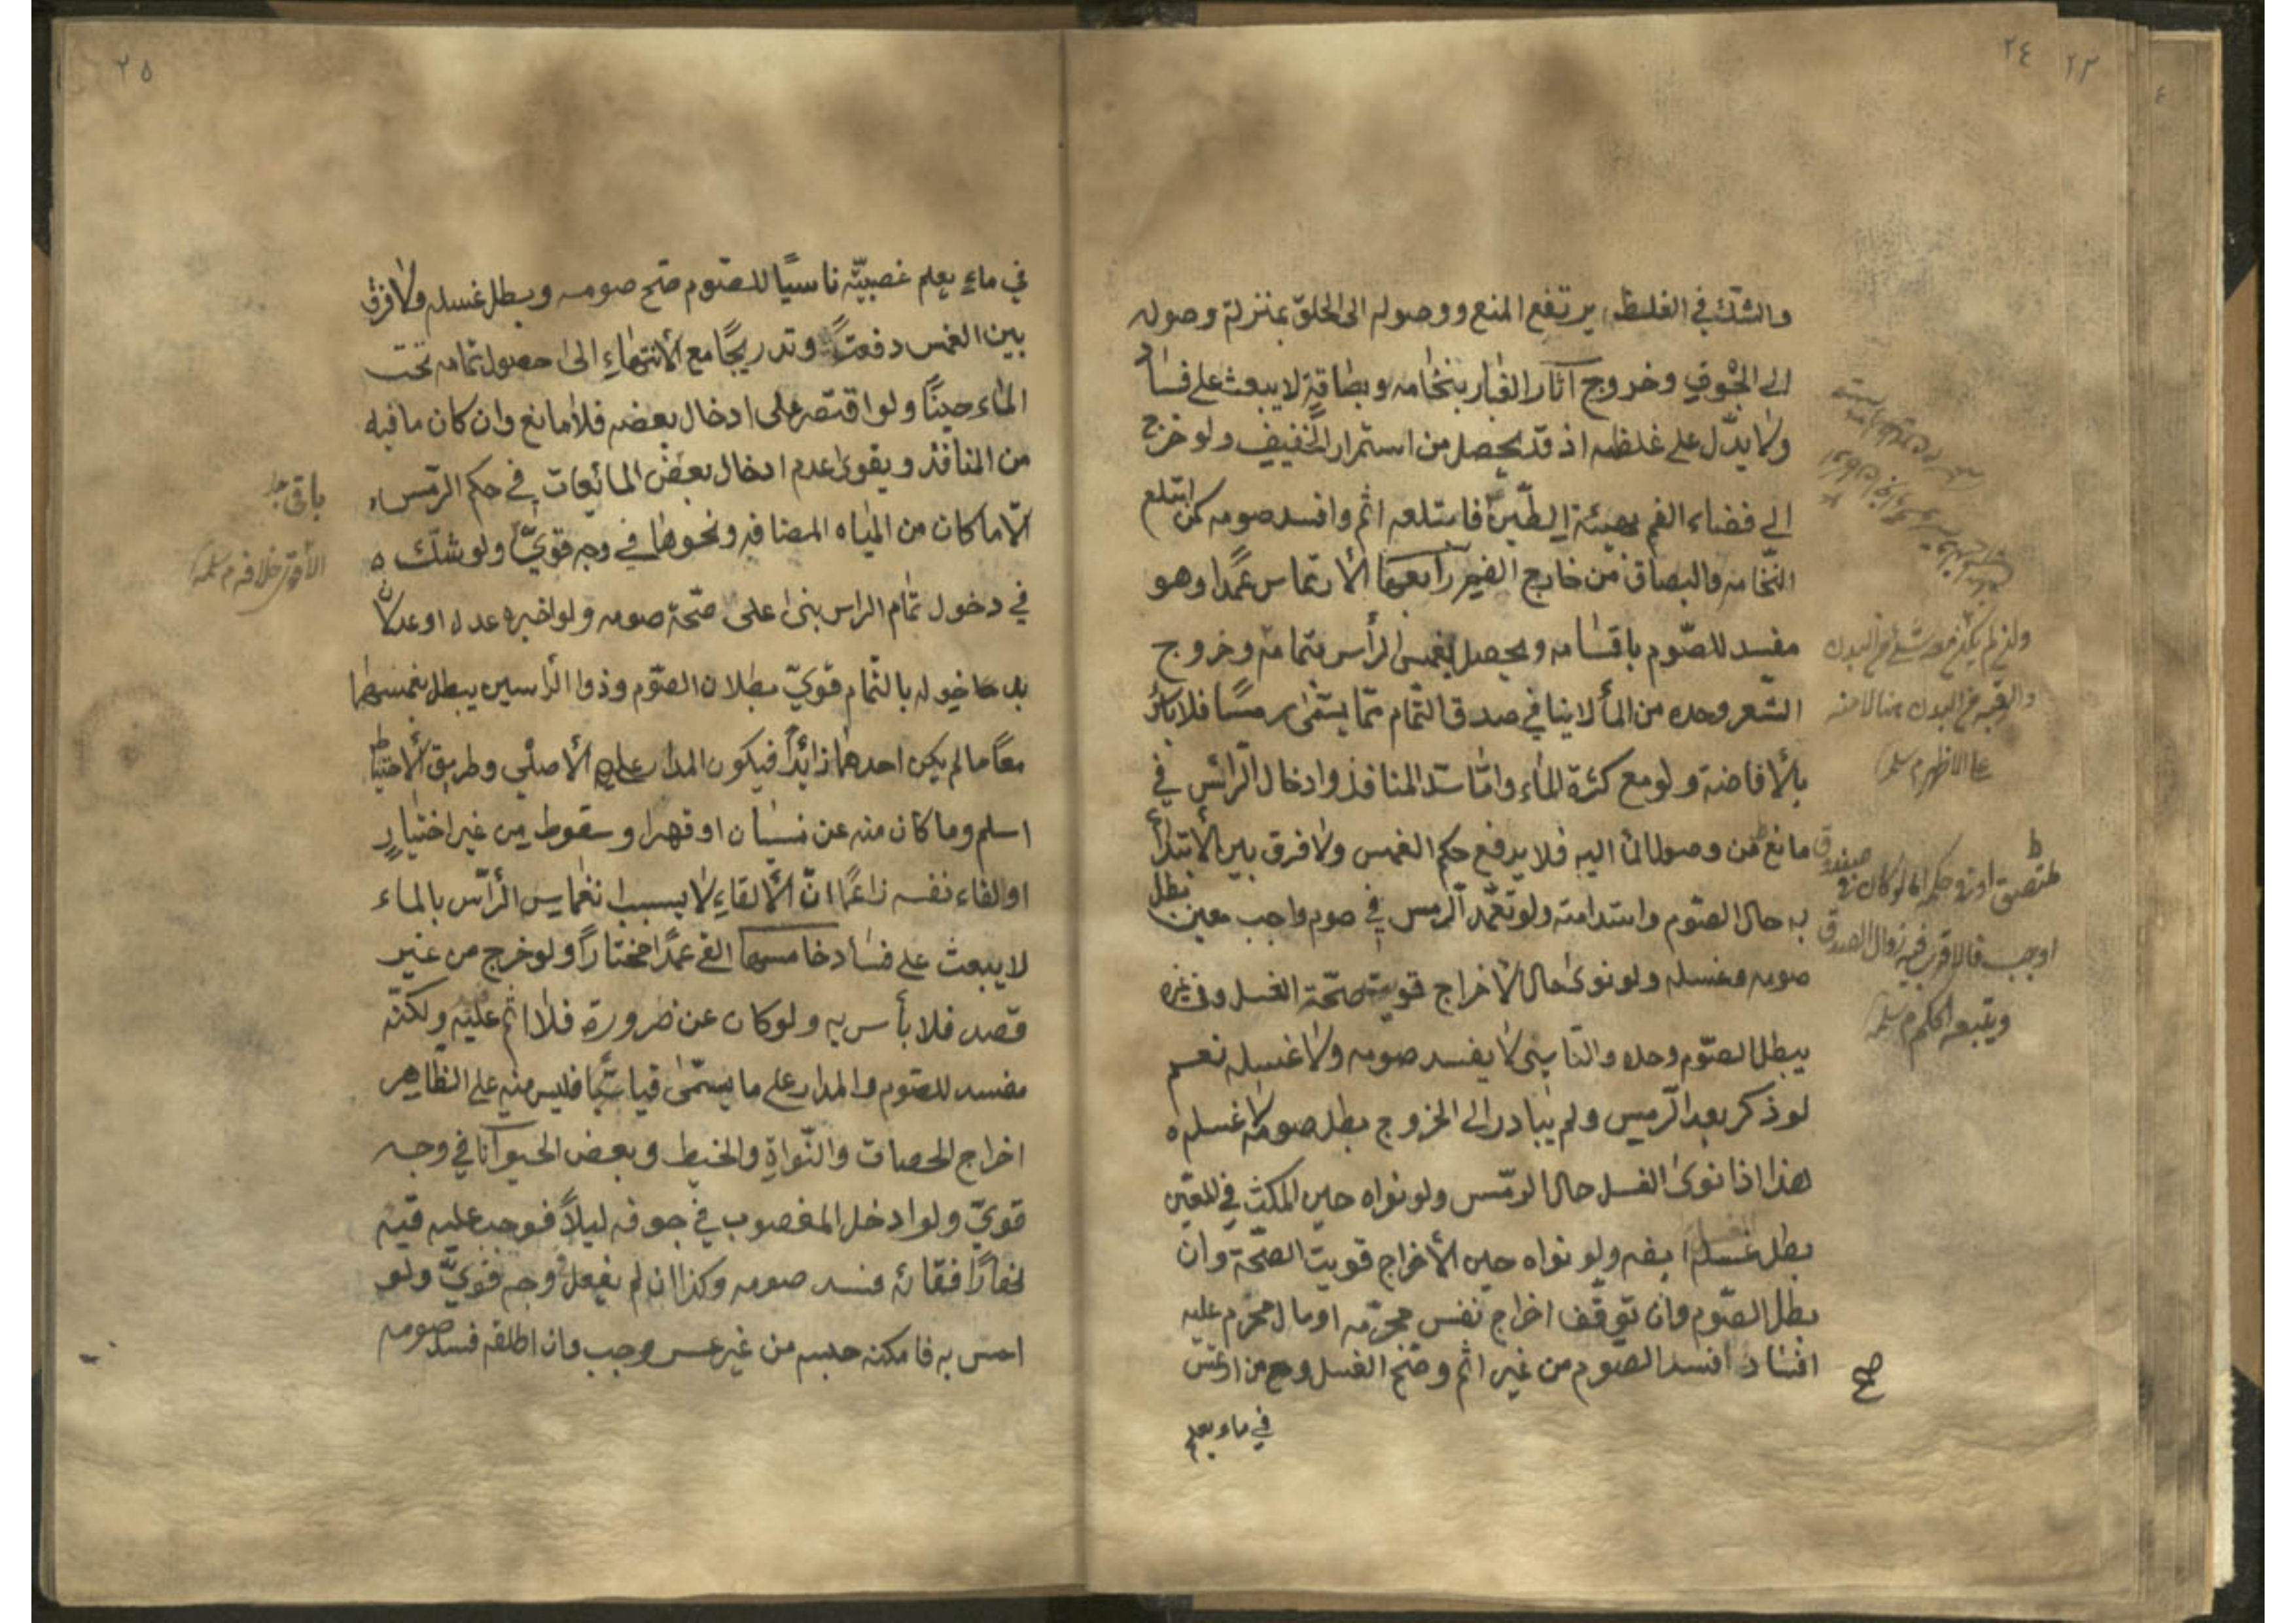 ٢٤ ٢٣
والشك في الغلظة يرتفع المنع ووصوله الى الحلق بمنزلة وصوله
الى الجوف وخروج آثار الغبار بنخامه وبصاقه لا يبعث على فساد
ولا يدل على غلظه اذ قد يحصل من استمرار الخفيف ولو خرج
الى فضاء الفم بهيئة الطين فابتلعه اثم وافسد صومه كمن ابتلع
النخامه والبصاق من خارج الفم رابعها الارتماس عمدا وهو
مفسد للصوم باقسامه ويحصل بغمس الرأس بتمامه وخروج
الشعر وحده من الماء لا ينافي صدق التمام مما يسمى رمسا فلا بأس
بالأفاضة ولو مع كثرة الماء واما سد المنافذ وادخال الرأس في
مانع من وصول الماء اليه فلا يرفع حكم الغمس ولا فرق بين الابتداء
به حال الصوم واستدامته ولو تعمد الرمس في صوم واجب معين بطل
صومه وغسله ولو نوى حال الاخراج قويت صحة الغسل وفي غيره
يبطل الصوم وحده والناسي لا يفسد صومه ولا غسله نعم
لو ذكر بعد الرمس ولم يبادر الى الخروج بطل صومه لا غسله
هذا اذا نوى الغسل حال الرمس ولو نواه حين المكث في المعين
بطل غسله ايضه ولو نواه حين الأخراج قويت الصحة وان
بطل الصوم وان توقف اخراج نفس محرمه او مال محرم عليه
افساد افسد الصوم من غير اثم وصح الغسل ومن ارتمس
في ماء يعلم
صح
ولن لم يكن
والرقبه من البدن هنا لا منه
على الاظهر م سلمه
او وجب فالاقرب فيه زوال الصدق
ويتبعه الحكم م سلمه
٢٥
في ماء يعلم غصبيته ناسيا للصوم صح صومه وبطل غسله ولا فرق
بين الغمس دفعة وتدريجا مع الانتهاء الى حصول تمامه تحت
الماء حينا ولو اقتصر على ادخال بعضه فلا مانع وان كان ما فيه
من المنافذ ويقوى عدم ادخال بعض المائعات في حكم الرمس
الا ما كان من المياه المضافه ونحوها في وجه قوي ولو شك
في دخول تمام الراس بنى على صحة صومه ولو اخبره عدل او عدلان
بدخوله بالتمام قوي بطلان الصوم وذو الرأسين يبطل بغمسهما
معا ما لم يكن احدهما زائدا فيكون المدار على الأصلي وطريق الاحتياط
اسلم وما كان منه عن نسيان او قهر او سقوط من غير اختيار
او القاء نفسه زاعما ان الالقاء لا يسبب انغماس الرأس بالماء
لا يبعث على فساد خامسها القئ عمدا مختارا ولو خرج من غير
قصد فلا بأس به ولو كان عن ضرورة فلا اثم عليه ولكنه
مفسد للصوم والمدار على ما يسمى قيأ فليس منه على الظاهر
اخراج الحصات والنواة والخيط وبعض الحيوانات في وجه
قوي ولو ادخل المغصوب في جوفه ليلا فوجب عليه قيئه
نهارا فقائه فسد صومه وكذا ان لم يفعل في وجه قوي ولو
احس به فامكنه حبسه من غير عسر وجب وان اطلقه فسد صومه
باقي
الأقرب خلافه م سلمه